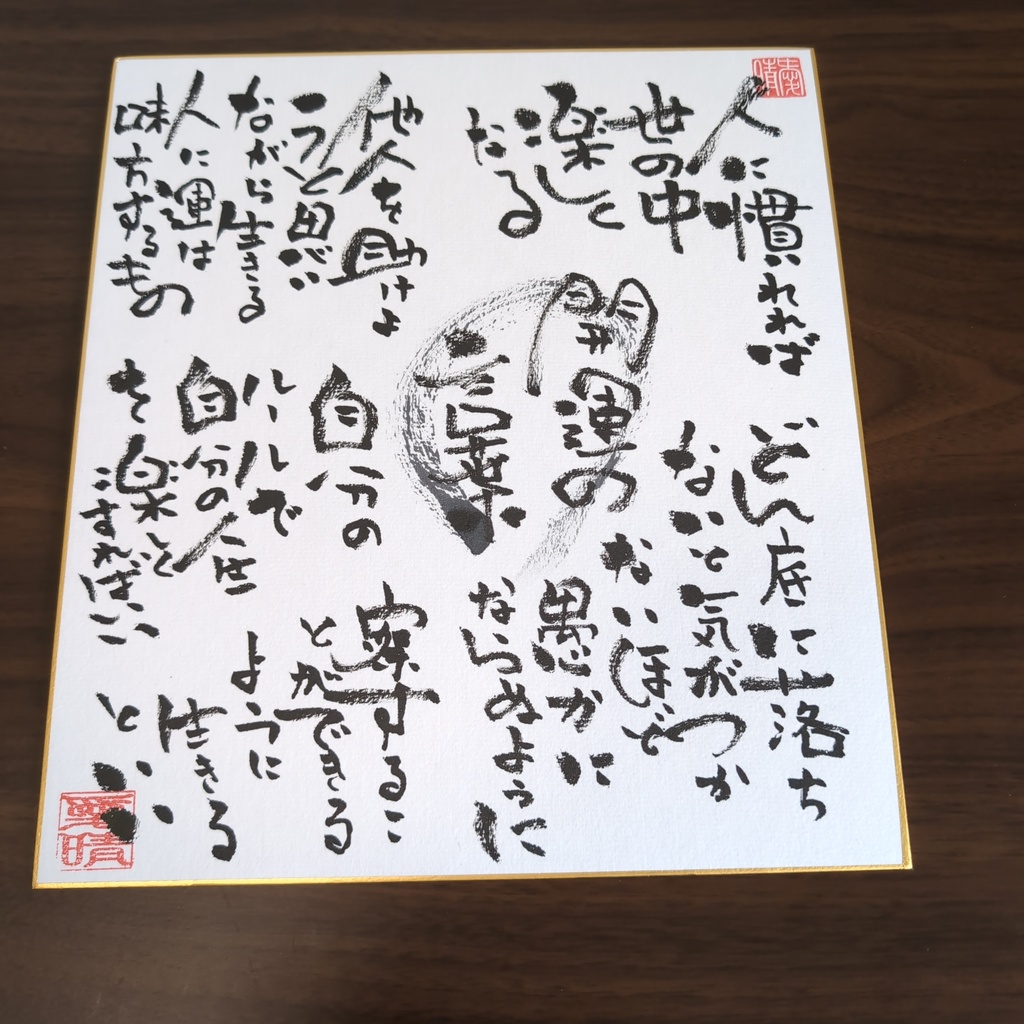 人に慣れれば
世の中
楽しく
なる
他人を助けよ
うと思い
ながら生きる
人に運は
味方するもの
開運の
言葉
どん底に落ち
ないと気がつか
ないほど
愚かに
ならぬように
自分の
ルールで
自分の人生
を楽しく
すればいい
察するこ
とができる
ように
生きる
といい